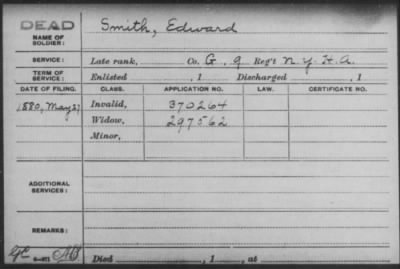 DEAD
NAME OF SOLDIER: Smith, Edward
SERVICE: Late rank, Co. G, 9 Reg't N.Y.H.A.
TERM OF SERVICE: Enlisted , 1 Discharged , 1
DATE OF FILING. CLASS. APPLICATION NO. LAW. CERTIFICATE NO.
1880, May 27 Invalid, 370264
Widow, 297562
Minor,
ADDITIONAL SERVICES:
REMARKS:
Died , 1 , at